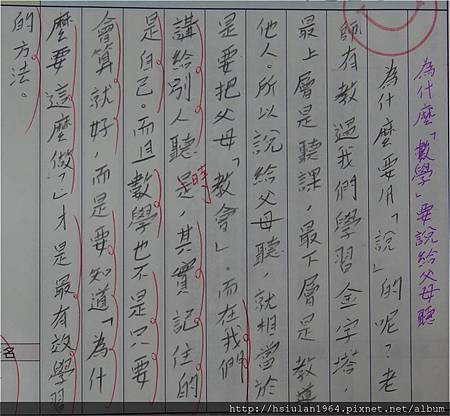 為什麼「數學」要說給父母聽
為什麼要用「說」的呢？老
師有教過我們學習金字塔，
最上層是聽課，最下層是教導
他人。所以說給父母聽，就相當於
是要把父母「教會」。而在我們
講給別人聽是，其實記住的
時
是自己。而且數學也不是只要
會算就好，而是要知道「為什
麼要這麼做？」才是最有效學習
的方法。
名
http://hsiulan1964.pixnet.net/album